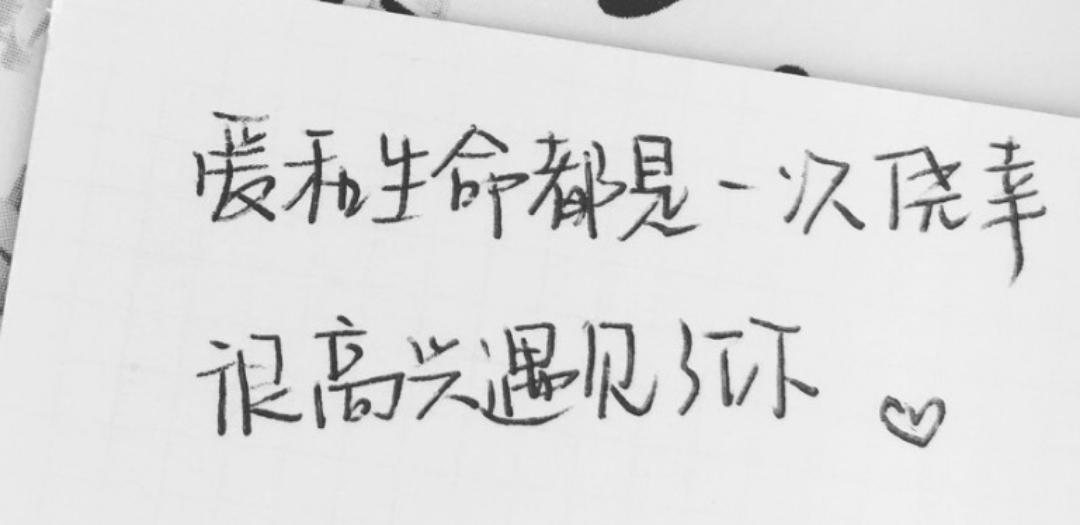 爱和生命都是一次侥幸
很高兴遇见了你